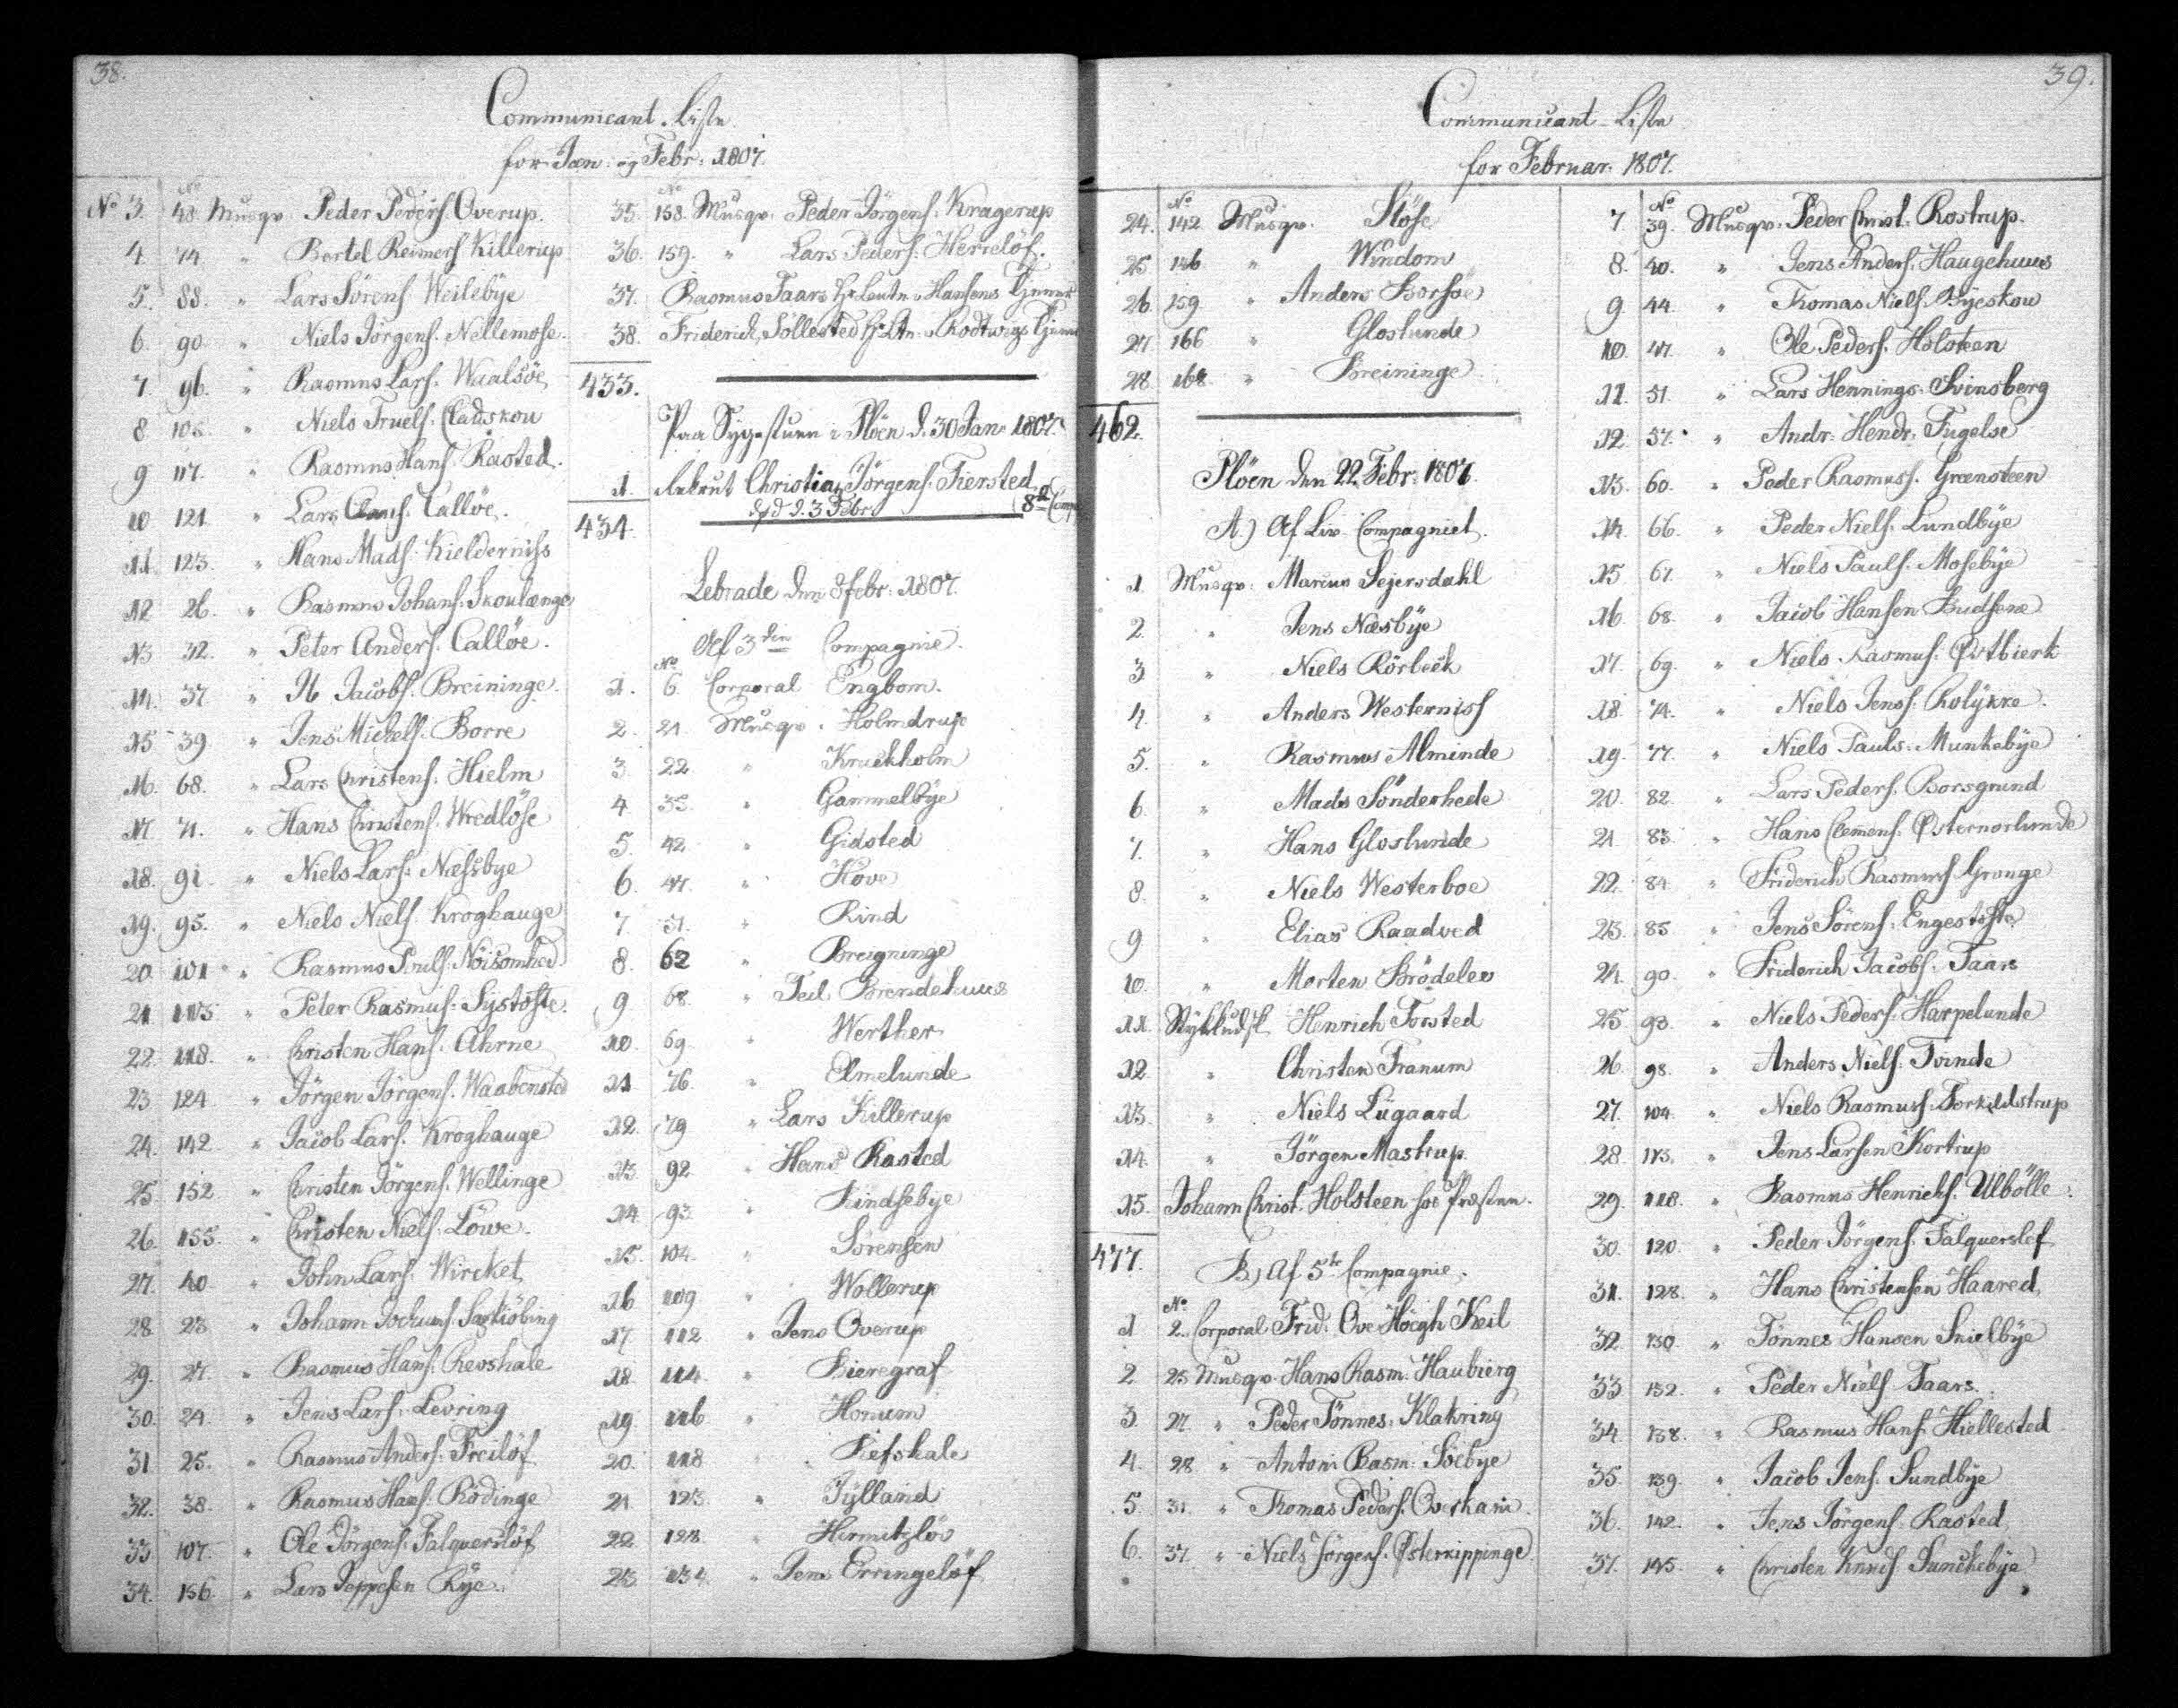 38.
Communicant-Liste
for Jan: og Febr: 1807.
No 3. No 48. Musqv. Peder Peders. Overup.
4. 74. " Bertel Reimers Killerup
5. 88. " Lars Sörens. Weilebÿe
6. 90 " Niels Jörgens. Nellemose.
7. 96. " Rasmus Lars. Waalsöe
8 108. " Niels Truels. Cladskou
9 117. " Rasmus Hans. Rasted.
10 121 " Lars Claus. Callöe.
11. 123. " Hans Mads. Kielderniss
12 26. " Rasmus Johans. Skoulænge
13 32. " Peter Anders. Callöe.
14. 37 " Ib Jacobs. Breininge.
15 39 " Jens Michels. Borre
16. 68. " Lars Christens. Hielm
17 71. " Hans Christens. Wredlöse
18. 91. " Niels Lars. Næssbye
19. 95. " Niels Niels. Kroghauge
20. 101 " Rasmus Pouls. Nöisomhed
21 115 " Peter Rasmus. Systofte.
22. 118. " Christen Hans. Ahrne
23 124 " Jörgen Jörgens. Waabensted
24. 142 " Jacob Lars. Kroghauge
25. 152 " Christen Jörgens. Wellinge
26. 155. " Christen Niels. Löwe.
27. 40 " John Lars. Wircket
28. 23 " Johann Jochums. Saxkiöbing
29. 27. " Rasmus Hans. Revshale
30. 24. " Jens Lars. Levring
31 25. " Rasmus Anders. Freilöf
32. 38. " Rasmus Hans. Rödinge
33 107. " Ole Jörgens. Falquerslöf
34. 156. " Lars Jeppesen Rÿe.
35. No 158. Musqv. Peder Jörgens. Kragerup
36. 159. " Lars Peders. Herrelöf.
37. Rasmus Taars Hr. Leutn. v Hansens
38. Friderich Söllested Hr. Ltn. v Rodtwigs
433.
Paa Sÿgestuen i Plöen d. 30 Jan. 1807.
1 Rekrut Christian Jörgens. Fiersted
död d. 3 Febr. 8de Comp
434.
Lebrade den 8 Febr: 1807.
Af 3die Compagnie.
1. No 6 Corporal Engbom.
2. 21. Musqv. Holmdrup
3. 22 " Kruckholm
4. 35. " Gammelbÿe
5. 42 " Gidsted
6. 47. " Höve
7. 51. " Rind
8. 62 " Breigninge
9 68. " Brendehuus
10. 69. " Werther
11 76. " Elmelunde
12. 79 " Lars Killerup
13. 92. " Hans Rasted
14. 93. " Kindsebye
15. 104. " Sörensen
16 109. " Wollerup
17. 112 " Jens Overup
18. 114. " Bieregraf
19. 116 " Honum
20. 118 " Refshale
21 123. " Jÿlland
22. 128 " Hermitzlöv
23 134. " Jens Erringelöf
39.
Communicant-Liste
for Februar: 1807.
24. No 142 Musqv. Stöse
25 146 " Windom
26. 159 " Anders Borsöe
27 166 " Gloslunde
28. 168. " Breininge
462.
Plöen den 22 Febr: 1807.
A.) Af Liv Compagniet.
1 Musqv: Marcus Sejersdahl
2. " Jens Næsbÿe
3 " Niels Rörbeck
4. " Anders Westerniss
5. " Rasmus Alminde
6. " Mads Sönderhede
7. " Hans Gloslunde
8 " Niels Westerboe
9 " Elias Raadved
10. " Morten Brödelev
11. Stÿkkudsk. Henrich Torsted
12 " Christen Tranum
13. " Niels Lügaard
14. " Jörgen Mastrup
15. Johann Christ. Holsteen hos Præsten.
477.
B.) Af 5te Compagnie.
1 No 2. Corporal Frid: Ove Höegh Keil
2 25 Musqv. Hans Rasm. Haubierg
3. 27 " Peder Tönnes. Klakring
4. 28 " Anton Rasm. Söebye
5. 31. " Thomas Peders. Overkam
6. 37. " Niels Jörgens. Østerkippinge
7. No 39. Musqv. Peder Christ. Rostrup.
8. 40. " Jens Anders. Haugehuus
9. 44. " Thomas Niels. Bÿeskou
10. 47. " Ole Peders. Holsteen
11. 51. " Lars Hennings. Svinsberg
12. 57. " Andr. Hendr. Fugelse
13. 60. " Peder Rasmuss. Greensteen
14. 66. " Peder Niels. Lundbÿe
15. 67. " Niels Pauls. Mosebÿe
16. 68. " Jacob Hansen Budsene
17. 69. " Niels Rasmus. Østbierk
18. 74. " Niels Jens. Rolykke.
19. 77. " Niels Pauls. Munkebÿe
20. 82. " Lars Peders. Borsgrund
21. 83. " Hans Clemens. Østernorlunde
22. 84. " Friderich Rasmus. Gronge
23. 85 " Jens Sörens. Engestofte
24. 90. " Friderich Jacobs. Taars
25 93. " Niels Peders. Harpelunde
26. 98. " Anders Niels. Tvinde
27. 104. " Niels Rasmus. Torkildstrup
28 113. " Jens Larsen Kortrup
29. 118. " Rasmus Henrichs. Ulbölle.
30. 120. " Peder Jörgens. Falquerslef
31. 128. " Hans Christensen Haared
32 130. " Tönnes Hansen Snielbÿe
33 132. " Peder Niels. Taars.
34. 138. " Rasmus Hans. Hiellested
35. 139. " Jacob Jens. Sundbÿe
36. 142. " Jens Jörgens. Rasted
37. 145. " Christen Knuds. Sunckebÿe